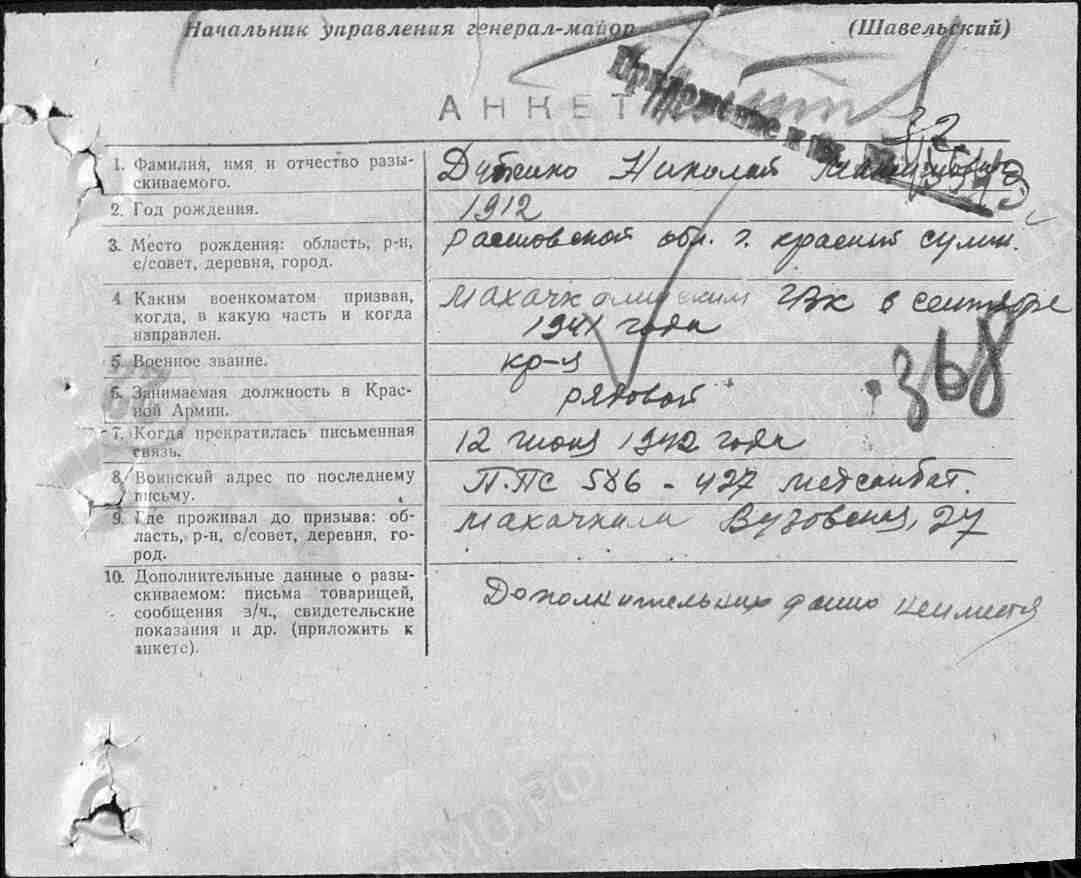 Начальник управления генерал-майор (Шавельский)
Приложение к вх.
АНКЕТ
32
1. Фамилия, имя и отчество разы-
скиваемого.
Николай
2. Год рождения.
1912
3. Место рождения: область, р-н,
с/совет, деревня, город.
Ростовской обл. г. красный сулин.
4 Каким военкоматом призван,
когда, в какую часть и когда
направлен.
Махачкалинским ГВК в сентябре
1941 года
5. Военное звание.
кр-ц
368
6. Занимаемая должность в Крас-
ной Армии.
рядовой
7. Когда прекратилась письменная
связь.
12 июня 1942 года
8. Воинский адрес по последнему
письму.
П.ПС 586 - 427 медсанбат.
9. Где проживал до призыва: об-
ласть, р-н, с/совет, деревня, го-
род.
Махачкала Вузовская,
10. Дополнительные данные о разы-
скиваемом: письма товарищей,
сообщения з/ч., свидетельские
показания и др. (приложить к
анкете).
Дополнительных